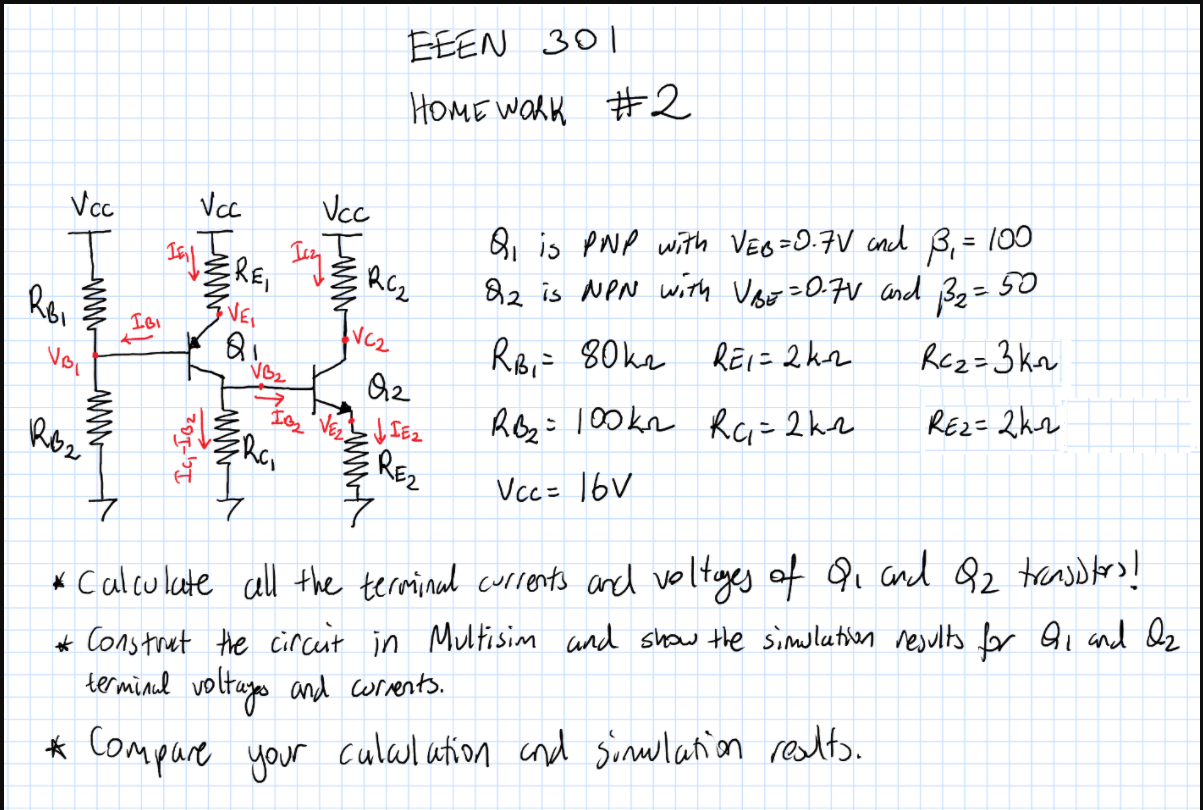 EEEN 301
HOMEWORK #2
Vcc Vcc Vcc
IE1 RE1 IC2 RC2
RB1 IB1 VE1
VB1 Q1 VC2
VB2 Q2
RB2 IC1-IB2 RC1 IB2 VE2 IE2
RE2
Q1 is PNP with VEB=0.7V and β1=100
Q2 is NPN with VBE=0.7V and β2=50
RB1= 80kΩ RE1=2kΩ RC2=3kΩ
RB2= 100kΩ RC1=2kΩ RE2=2kΩ
Vcc= 16V
* Calculate all the terminal currents and voltages of Q1 and Q2 transistors!
* Construct the circuit in Multisim and show the simulation results for Q1 and Q2
terminal voltages and currents.
* Compare your calculation and simulation results.